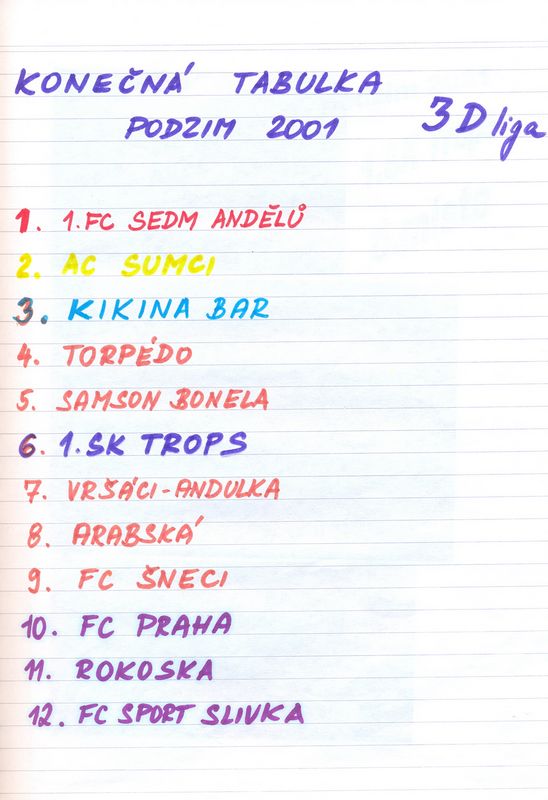 KONEČNÁ TABULKA
PODZIM 2001
3D liga
1. 1.FC SEDM ANDĚLŮ
2. AC SUMCI
3. KIKINA BAR
4. TORPÉDO
5. SAMSON BONELA
6. 1.SK TROPS
7. VRŠÁCI-ANDULKA
8. ARABSKÁ
9. FC ŠNECI
10. FC PRAHA
11. ROKOSKA
12. FC SPORT SLIVKA